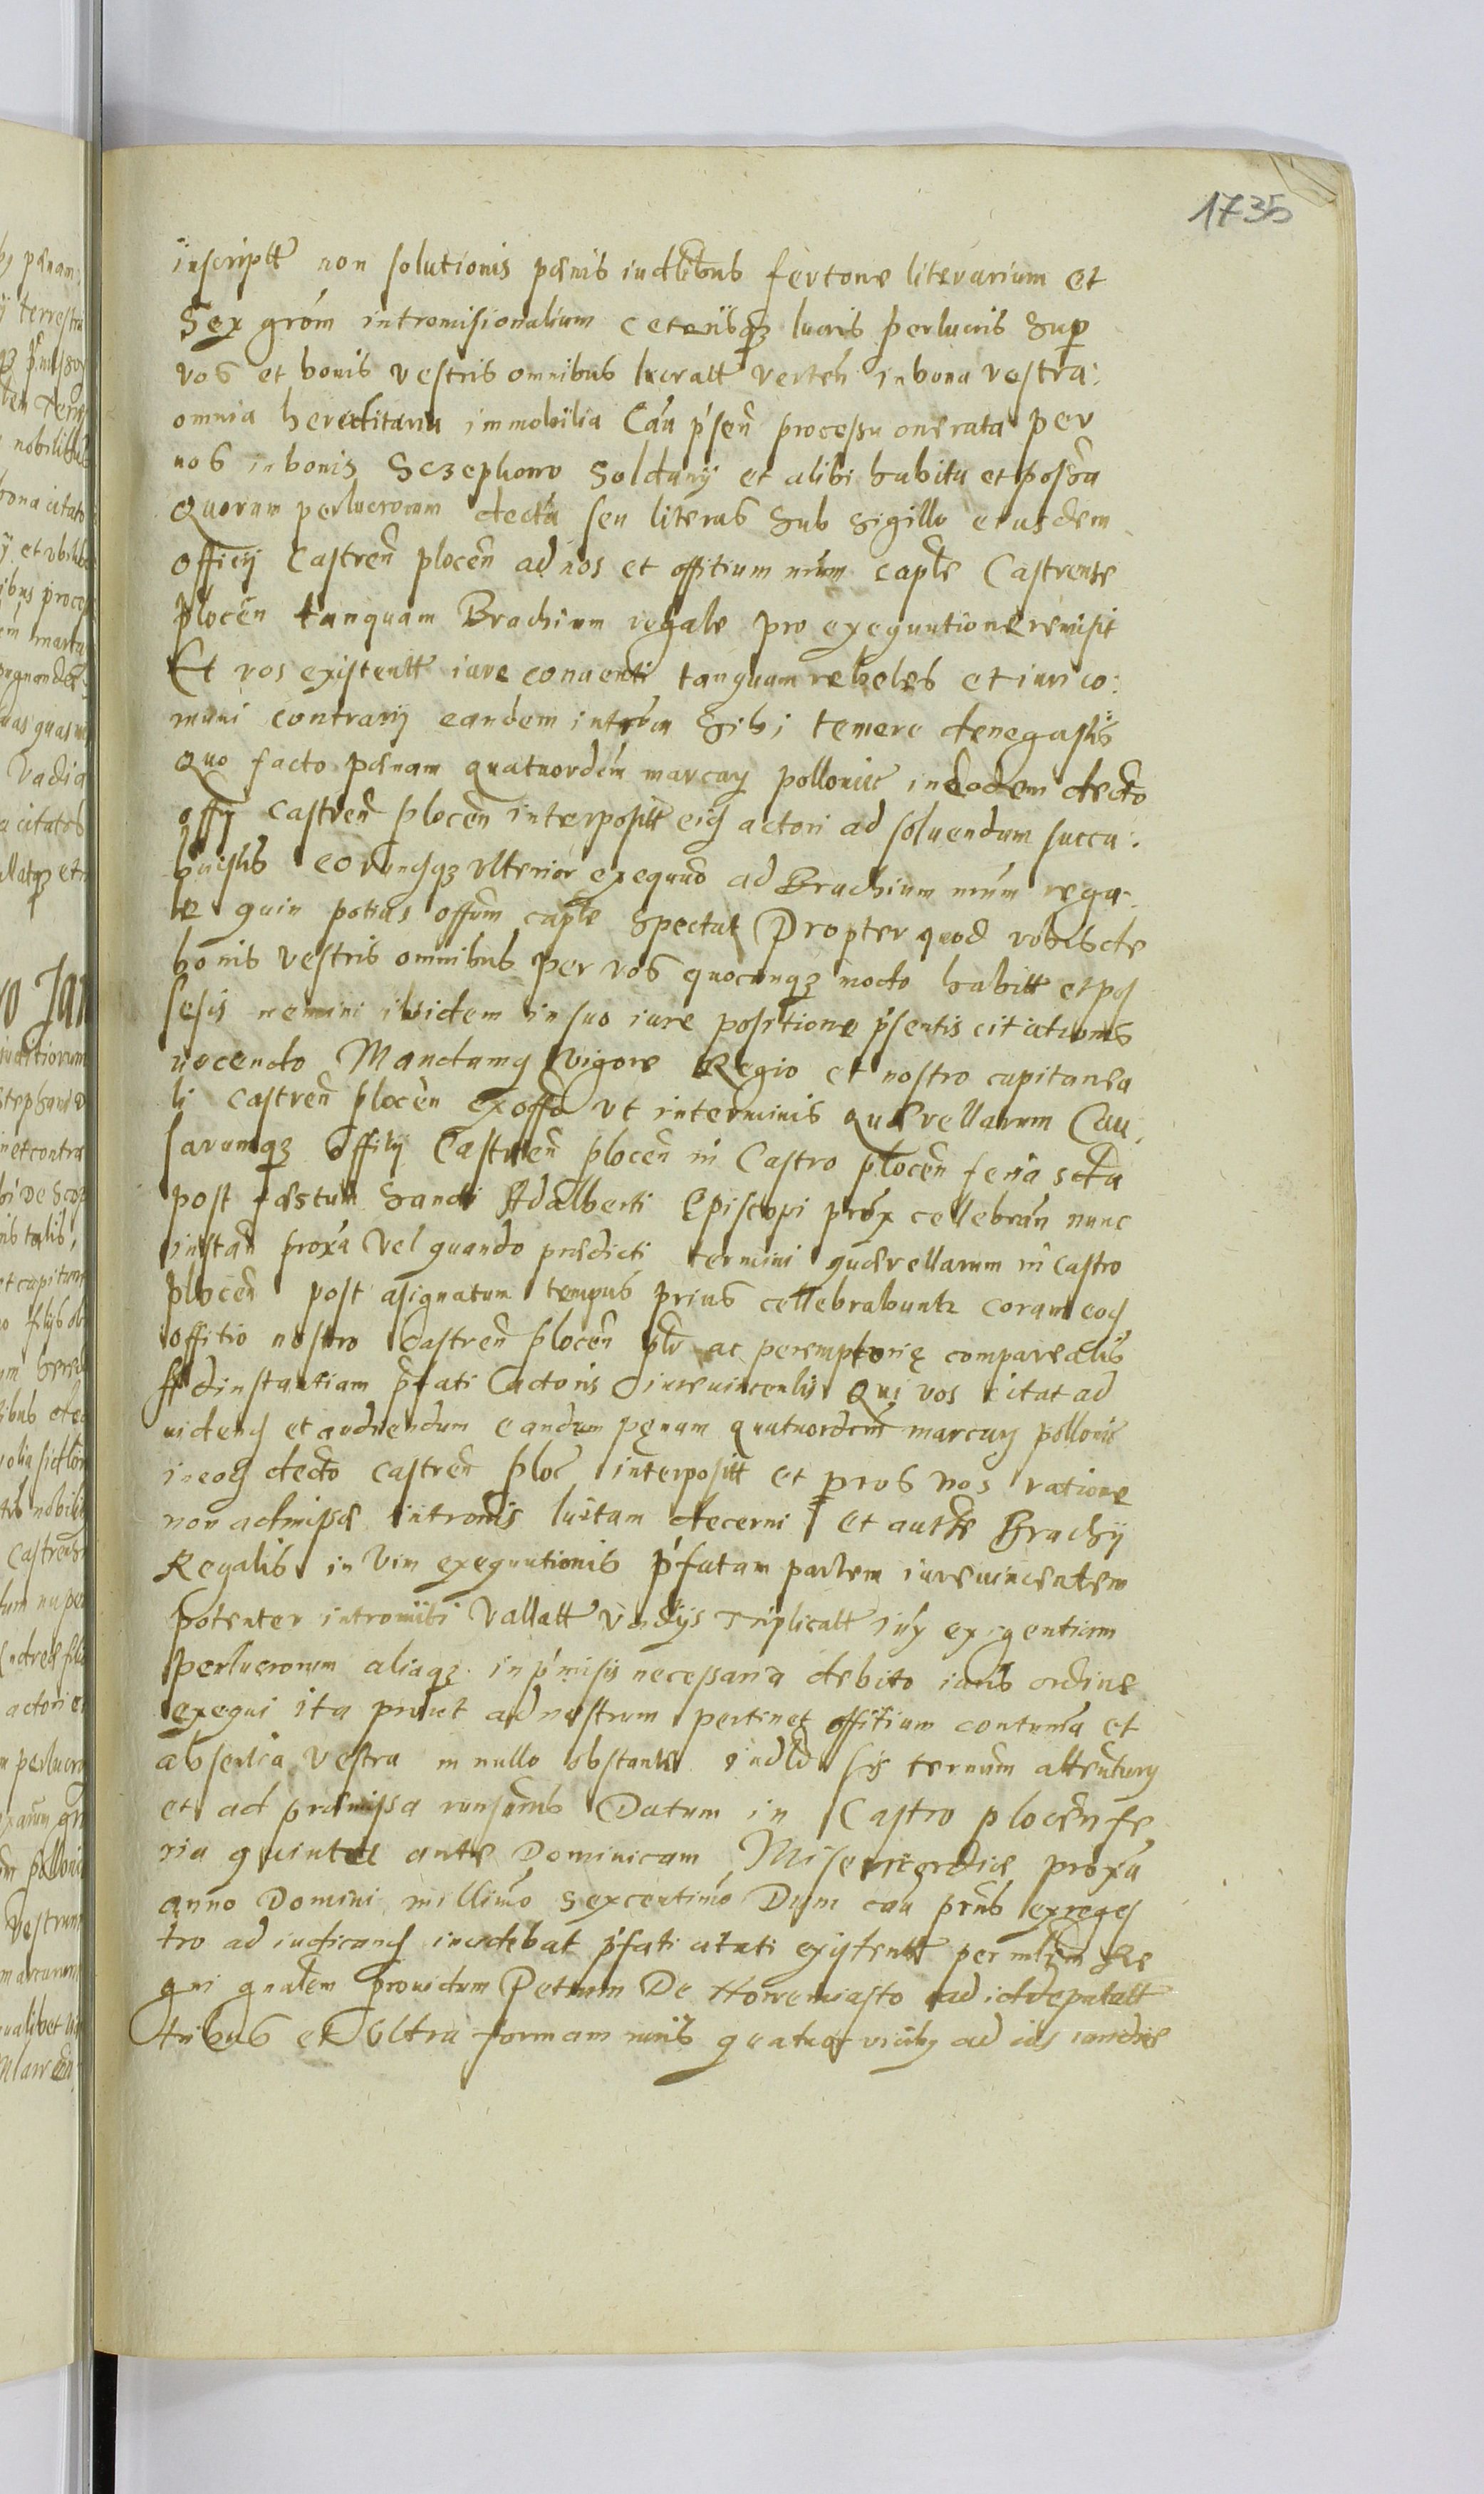 1735
inscriptt non solutionis pænis iudlibus fertone literarium et
Sex grom intromisionalium ceterisqz lucris perlucris Sup
vos et bonis vestris omnibus lucratt verten in bona vestra:
omnia hereditaria immobilia Cau psen processu onerata per
vos in bonis Sczephowo Soldanij et alibi habita et possa
Quorum perlucrorum decta seu literas Sub Sigillo eiusdem
officij Castren plocen ad nos et offitium nrum caple Castrense
plocen tanquam Brachium regale pro exequutione remisit
Et vos existentt iure conuenti tanquam rebeles et iuri co:
muni contrarij eandem intrbm Sibi temere denegastis
Quo facto pænam quatuordem marcarz pollonic in eodem decto
offi castren plocen interpositt eid actori ad soluendum succu:
buistis eorundqz vlterior exequuo ad Brachium nrum rega:
le quin potius offum caple Spectat Propter quod vobis de
bonis vestris omnibus per vos quocunqz modo habitt et pos
sesis nemini ibidem in suo iure positione psentis citationis
nocendo Mandamus vigore Regio et nostro capitanea
li castren plocen ex offo vt in terminis quærellarum Cau:
sarumqz offitij Castren plocen in Castro plocen feria scda
post fæstum Sancti Adalberti Episcopi prox cellebran nunc
instan proxa Vel quando prædicti termini quærellarum in castro
plocen post asignatum tempus prius cellebrabuntr coram eod
offitio nostro Castren plocen plr ac peremptorię compareatis
Ad instantiam pfati actoris iureuincentis Qui vos citat ad
uidend et audiendum eandem pęnam quatuordem marcarz pollonic
in eod decto castren ploc interpositt et p vos nos ratione
non admissæ intromis luitam decerni et autte Brachij
Regalis in vim exequutionis pfatam partem iureuincentem
potenter intromitti vallatt vadijs triplicatt iux exigentiam
perlucrorum aliaqz in pmisis necessaria debito iuris ordine
exequi ita prout ad nostrum pertinet offitium contuma et
absentia vestra in nullo obstante iudld sis termum attenturz
et ad præmissa runsuris Datum in Castro plocen fe
ria quinta ante Dominicam Misericordiæ proxa
anno Domini millimo sexcentimo Dum cau pntis ex reges
tro ad iudicand incidebat pfati citati existentt per mlrem Re
gni gnalem prouidum Petrum De Nowemiasto ad id deputatt
tribus et vltra formam iuris quatuor vicibz ad ius iamdic